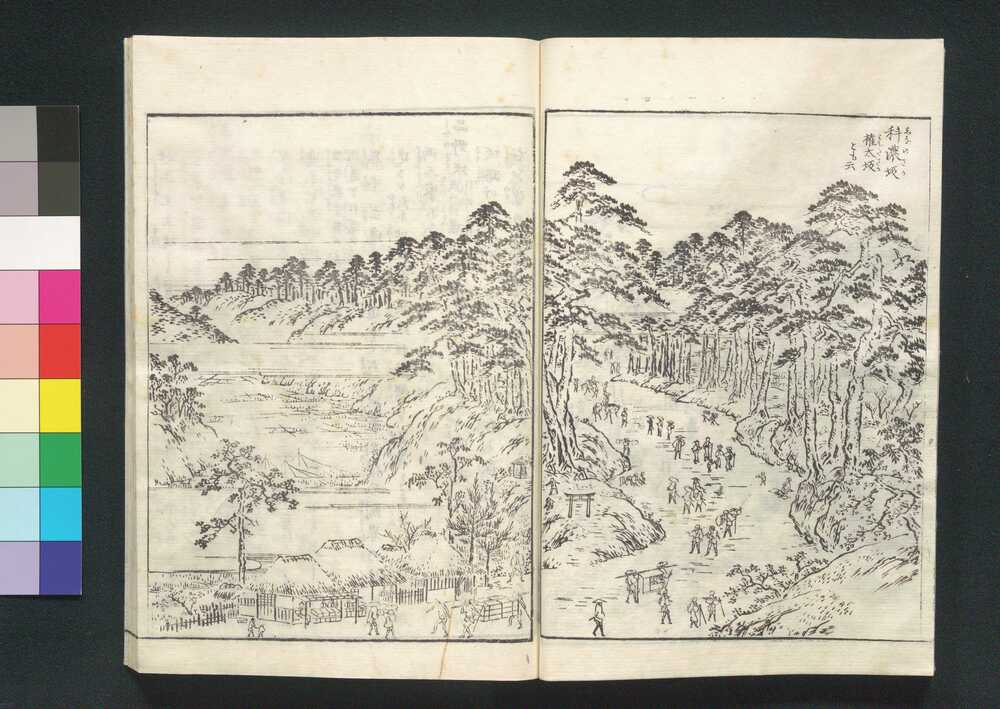 科濃坂
権太坂
とも云